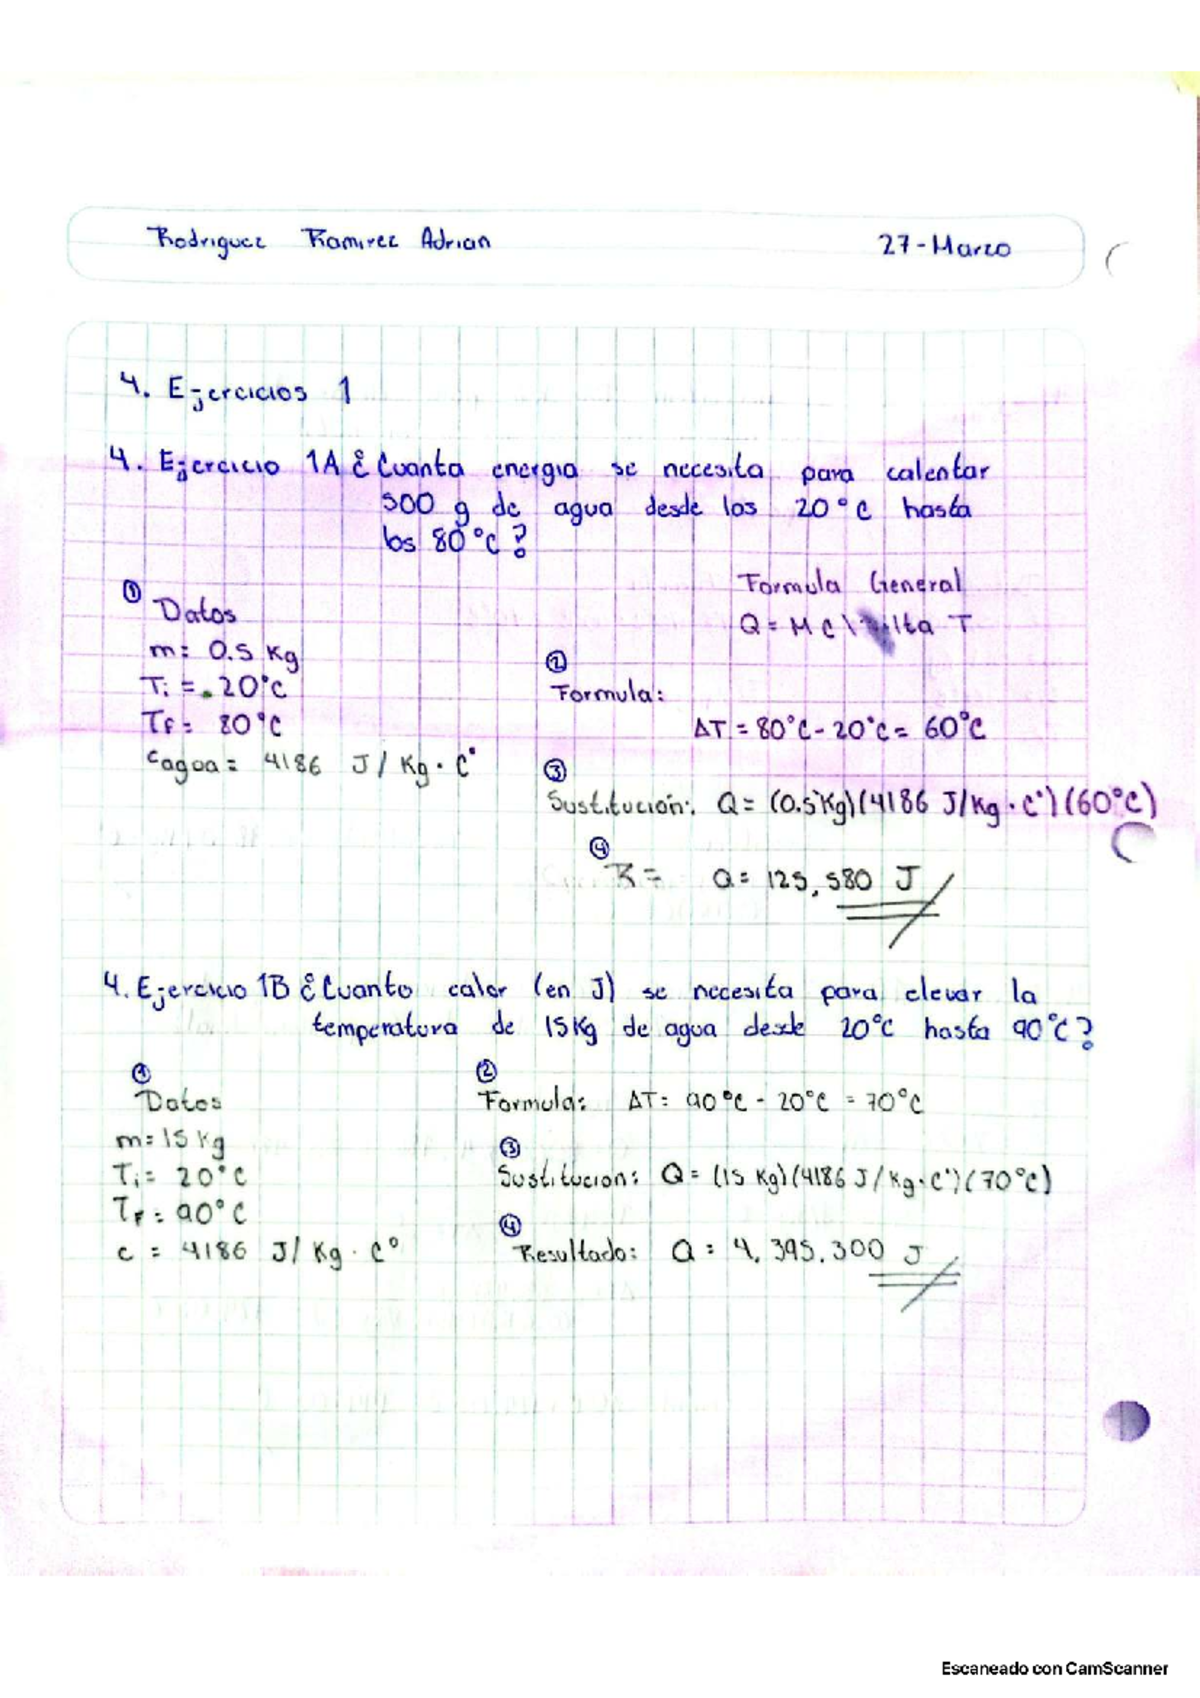 Rodriguez Ramirez Adrian 27-Marzo
4. Ejercicios 1
4. Ejercicio 1A ¿Cuanta energia se necesita para calentar
500 g de agua desde los 20°C hasta
los 80°C?
①
Datos
Formula General
Q = M C \ Delta T
m: 0.5 Kg
Ti = 20°C
TF = 80°C
Cagua = 4186 J/Kg · C°
②
Formula:
ΔT = 80°C - 20°C = 60°C
③
Sustitución: Q = (0.5Kg)(4186 J/Kg · C°)(60°C)
④
R = Q = 125,580 J
4. Ejercicio 1B ¿Cuanto calor (en J) se necesita para elevar la
temperatura de 15Kg de agua desde 20°C hasta 90°C?
①
Datos
m = 15 Kg
Ti = 20°C
TF = 90°C
c = 4186 J/Kg · C°
②
Formula: ΔT = 90°C - 20°C = 70°C
③
Sustitucion: Q = (15 Kg)(4186 J/Kg·C°)(70°C)
④
Resultado: Q = 4,395,300 J
Escaneado con CamScanner